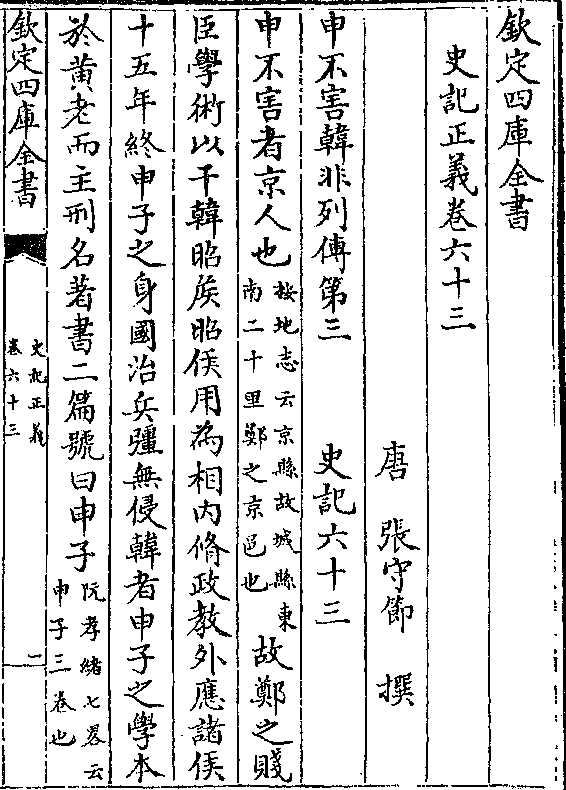 欽定四庫全書
史記正義卷六十三
唐 張守節 撰
申不害韓非列傳第三 史記六十三
申不害者京人也
按地志云京縣故城縣東
南二十里鄭之京邑也
故鄭之賤
臣學術以干韓昭侯昭侯用為相内脩政教外應諸侯
十五年終申子之身國治兵彊無侵韓者申子之學本
於黄老而主刑名著書二篇號曰申子
阮孝緒七畧云
申子三卷也
欽定四庫全書
史記正義
卷六十三
一